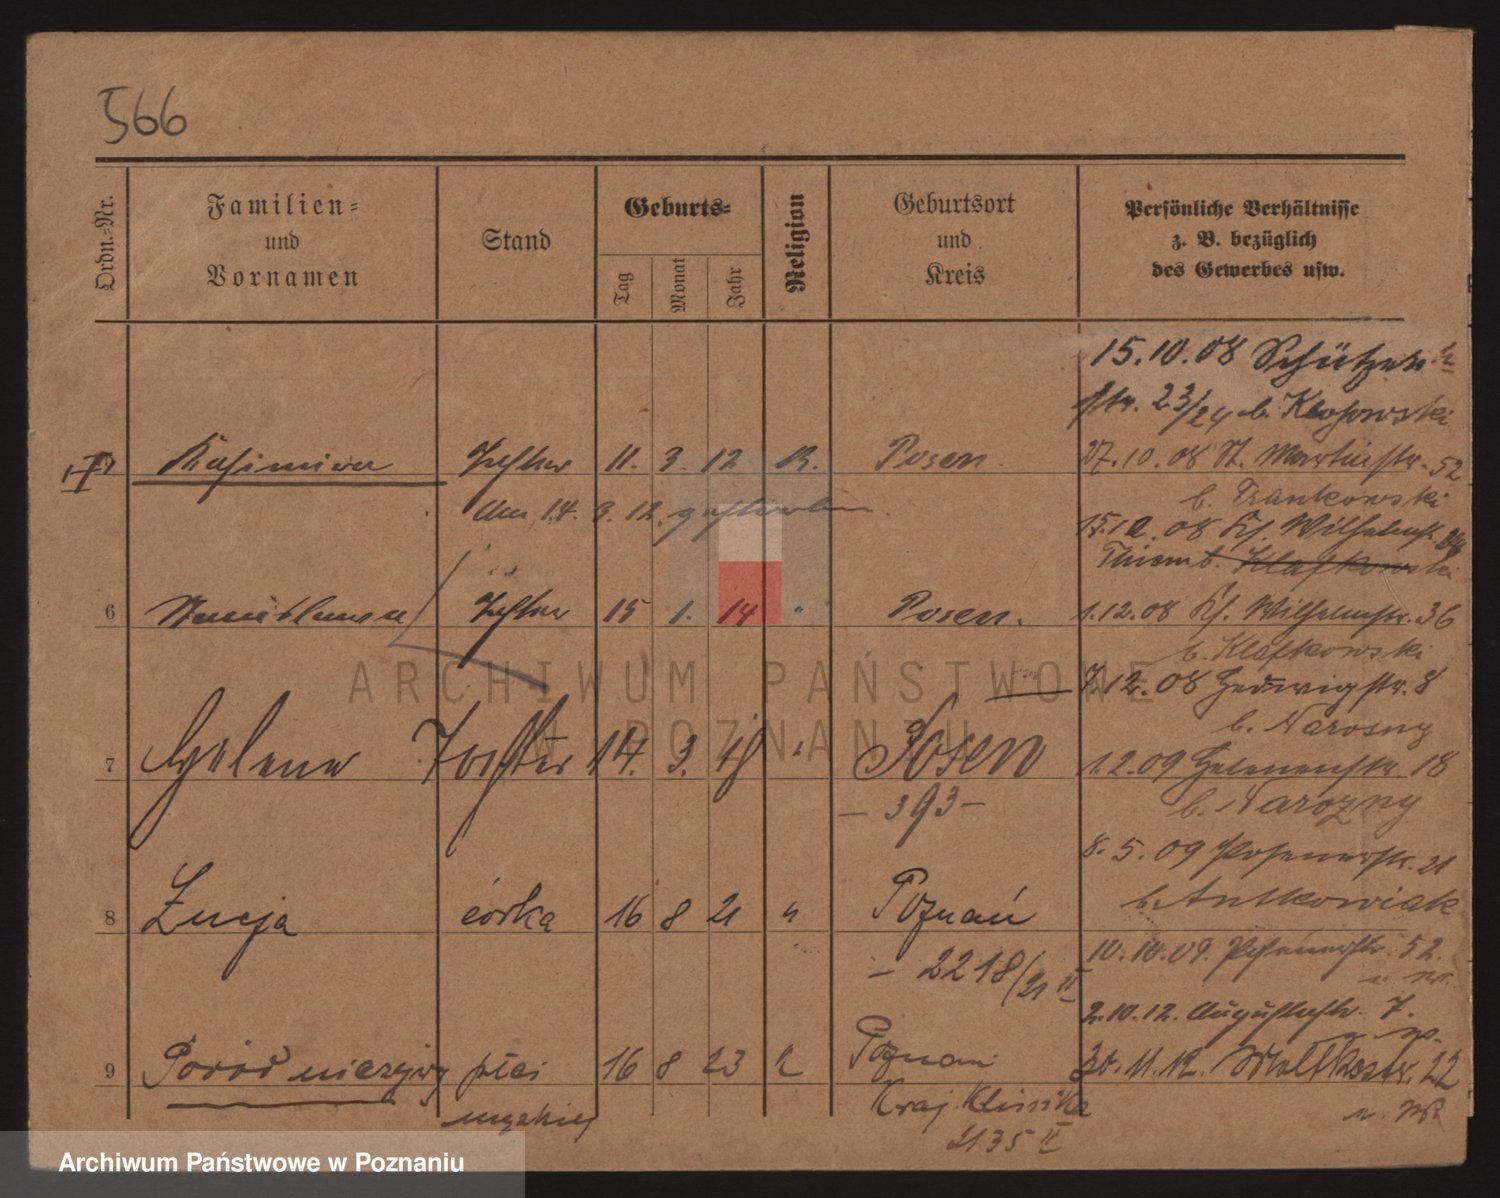 566
Ordn.-Nr.
Familien-
und
Vornamen
Stand
Geburts-
Tag
Monat
Jahr
Religion
Geburtsort
und
Kreis
Persönliche Verhältnisse
z. B. bezüglich
des Gewerbes usw.
15.10.08 Schützen
str. 23/24 b. Klosowski
Kasimira Tochter 11. 3. 12 K. Posen.
27.10.08 St. Martinstr. 52
den 14. 3. 12. gestorben.
b. Frankowski
15.12.08 Kl. Wilhelmstr.
Thiem b. Klafkowski
6 Stanislawa Tochter 15 1. 14 " Posen.
1.12.08 Kl. Wilhelmstr. 36
b. Klafkowski
7.12.08 Hedwigstr. 8
b. Narozny
7 Helena Tochter 14. 3. 18 " Posen
1.2.09 Helenenstr. 18
- 393 -
b. Narozny
8.5.09 Posenerstr. 21
b. Antkowiak
8 Łucja córka 16 8 21 " Poznań
10.10.09. Posenerstr. 52.
- 2218/21 II
2.10.12. Augustastr. 7.
9 Poród nieżywy płci 16 8 23 K Poznań
30.11.12. Moltkestr. 22
męskiej
Kraj. Klinika
2135 II
ARCHIWUM PAŃSTWOWE
W POZNANIU
Archiwum Państwowe w Poznaniu